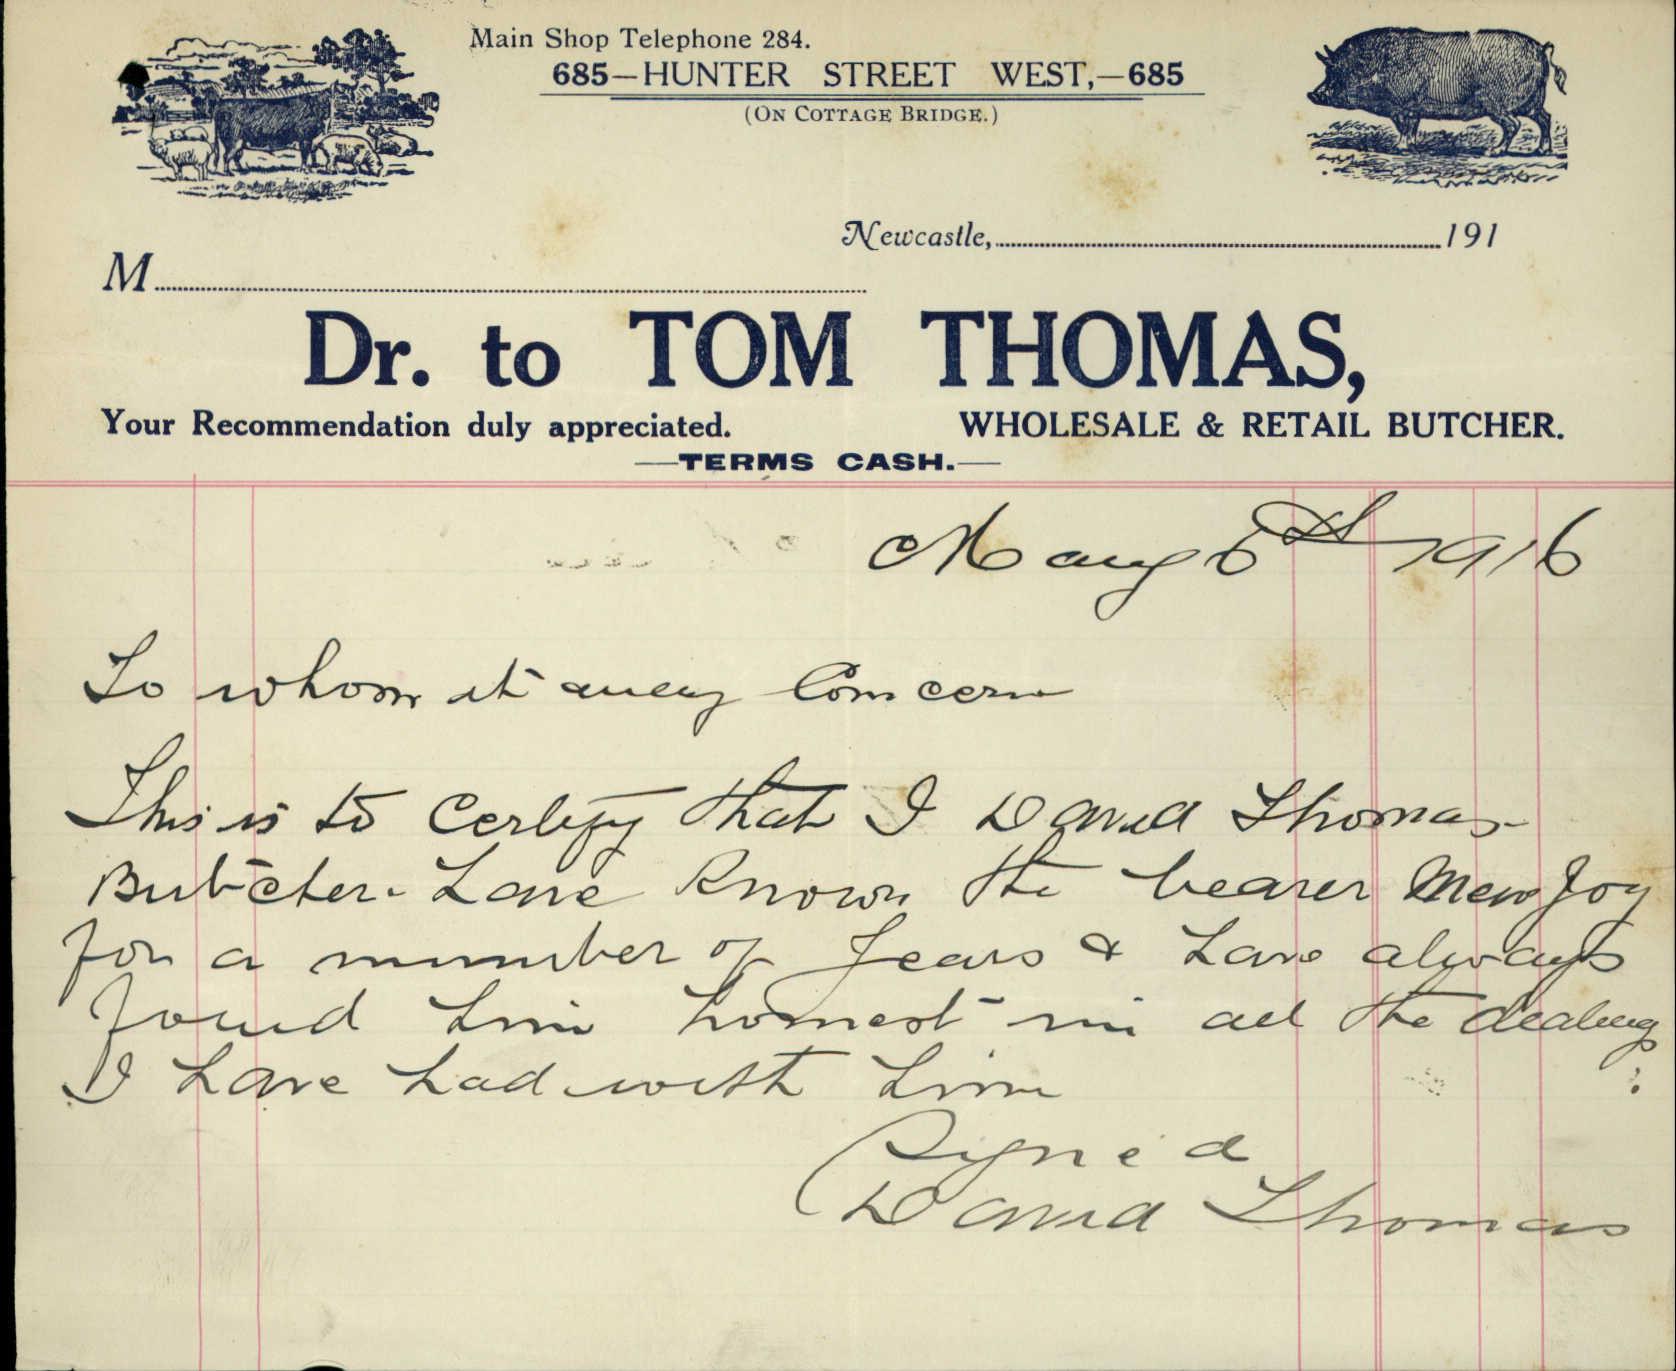 Main Shop Telephone 284.
685—HUNTER STREET WEST,—685
(ON COTTAGE BRIDGE.)
Newcastle,..........191
M..........
Dr. to TOM THOMAS,
Your Recommendation duly appreciated. WHOLESALE & RETAIL BUTCHER.
—TERMS CASH.—
May 6th 1916
To whom it may Concern
This is to Certify that I David Thomas
Butcher. Have Known the bearer Mew Joy
for a number of Years & have always
found him honest in all the dealings
I have had with him
Signed
David Thomas